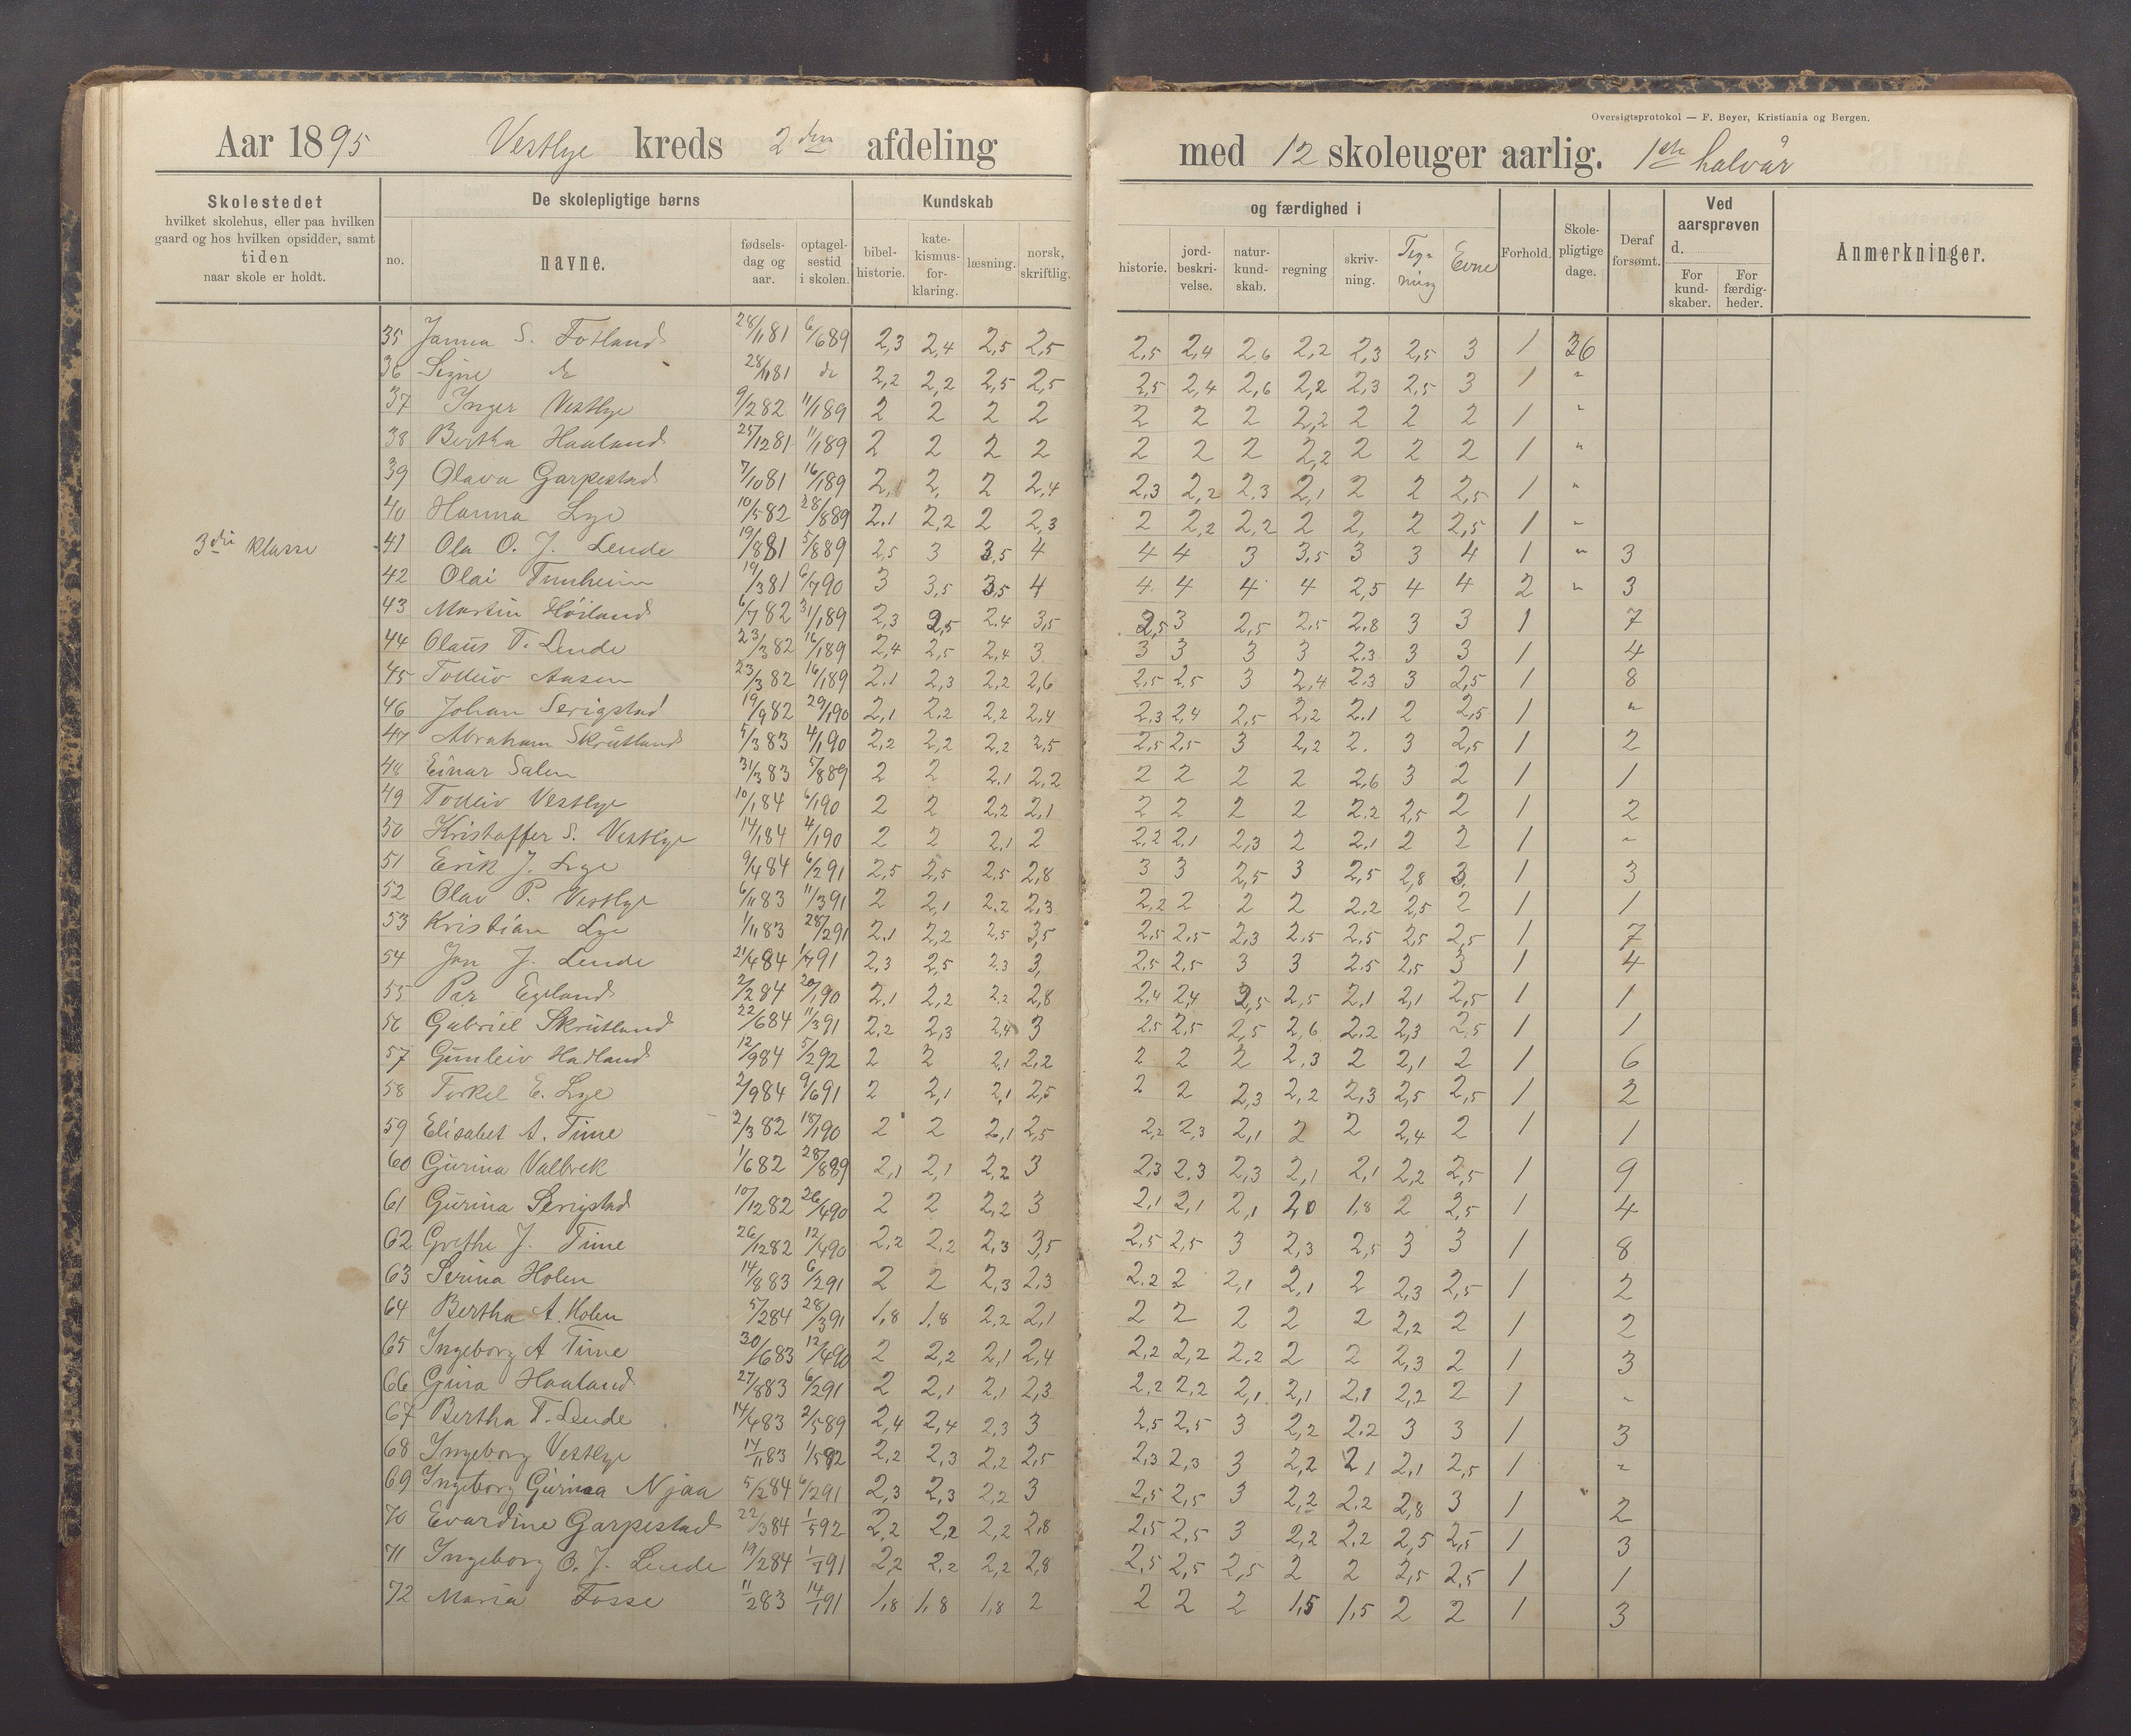 Oversigtsprotokol — F. Beyer, Kristiania og Bergen.
Aar 1895 Vestlye kreds 2den afdeling med 12 skoleuger aarlig. 1ste halvår
Skolestedet hvilket skolehus, eller paa hvilken gaard og hos hvilken opsidder, samt tiden naar skole er holdt.
De skolepligtige børns
no. navne. fødsels-dag og aar. optagel-sestid i skolen.
Kundskab og færdighed i
bibel-historie. kate-kismus-for-klaring. læsning. norsk, skriftlig. historie. jord-beskri-velse. natur-kund-skab. regning skriv-ning. Teg-ning Evne
Forhold. Skole-pligtige dage. Deraf forsømt. Ved aarsprøven d. For kund-skaber. For færdig-heder. Anmerkninger.
35 Janna S. Fotland 28/11 81 6/6 89 2,3 2,4 2,5 2,5 2,5 2,4 2,6 2,2 2,3 2,5 3 1 36
36 Signe do 28/11 81 do 2,2 2,2 2,5 2,5 2,5 2,4 2,6 2,2 2,3 2,5 3 1 "
37 Inger Vestlye 9/2 82 11/1 89 2 2 2 2 2 2 2 2,2 2 2 2 1 "
38 Bertha Haaland 25/12 81 11/1 89 2 2 2 2 2 2 2 2,2 2 2 2 1 "
39 Olava Garpestad 7/10 81 16/1 89 2, 2, 2 2,4 2,3 2,2 2,3 2,1 2 2 2,5 1 "
40 Hanna Lye 10/5 82 28/8 89 2.1 2,2 2 2,3 2 2,2 2,2 2 2, 2 2,5 1 "
3die klasse 41 Ola O. J. Lende 19/8 81 5/8 89 2,5 3 3,5 4 4 4 3 3,5 3 3 4 1 " 3
42 Olai Tunheim 19/3 81 6/7 90 3 3,5 3,5 4 4 4 4 4 2,5 4 4 2 " 3
43 Martin Höiland 6/7 82 31/1 89 2,3 2,5 2.4 3,5 2,5 3 2,5 2,5 2.8 3 3 1 7
44 Olaus T. Lende 23/3 82 16/1 89 2,4 2,5 2,4 3 3 3 3 3 2.3 3 3 1 4
45 Tolleiv Aasen 23/3 82 16/1 89 2.1 2,3 2,2 2,6 2,5 2,5 3 2,4 2.3 3 2,5 1 8
46 Johan Serigstad 19/9 82 29/1 90 2,1 2.2 2,2 2,4 2,3 2,4 2,5 2,2 2.1 2 2,5 1 "
47 Abraham Skrutland 5/3 83 4/1 90 2,2 2,2 2,2 2,5 2,5 2,5 3 2,2 2. 3 2,5 1 2
48 Einar Salen 31/3 83 5/8 89 2 2 2.1 2,2 2 2 2 2 2,6 3 2 1 1
49 Tolleiv Vestlye 10/1 84 6/1 90 2 2 2,2 2,1 2 2 2 2 2.2 2,5 2 1 2
50 Kristoffer S. Vestlye 14/1 84 4/1 90 2 2 2,1 2 2,2 2.1 2,3 2 2.1 2 2 1 "
51 Erik J. Lye 9/4 84 6/2 91 2,5 2,5 2,5 2,8 3 3 2,5 3 2,5 2,8 3. 1 3
52 Olav P. Vestlye 6/11 83 11/3 91 2 2,1 2.2 2,3 2,2 2 2 2 2.2 2,5 2 1 1
53 Kristian Lye 1/11 83 28/2 91 2.1 2,2 2,5 3,5 2,5 2,5 2,3 2,5 2,5 2,5 2,5 1 7
54 Jon J. Lende 21/4 84 1/7 91 2,3 2,5 2.3 3, 2,5 2,5 3 3 2.5 2,5 3 1 4
55 Per Egeland 2/2 84 20/1 90 2,1 2,2 2,2 2,8 2,4 2,4 2,5 2,5 2.1 2,1 2,5 1 1
56 Gabriel Skrutland 22/6 84 11/3 91 2,2 2,3 2,4 3 2,5 2,5 2,5 2,6 2.2 2,3 2,5 1 1
57 Gunleiv Hadland 12/9 84 5/2 92 2 2 2,1 2,2 2 2 2 2,3 2 2,1 2 1 6
58 Torkel E. Lye 2/9 84 9/6 91 2 2,1 2,1 2,5 2 2 2,3 2,2 2,3 2,5 2,5 1 2
59 Elisabet A. Time 2/3 82 18/1 90 2 2 2,1 2,5 2,2 2,3 2,1 2 2 2,4 2 1 1
60 Gurina Valbrek 1/6 82 28/8 89 2,1 2,1 2,2 3 2,3 2.3 2,3 2,1 2,1 2,2 2,5 1 9
61 Gurina Serigstad 10/12 82 26/4 90 2 2 2,2 3 2,1 2,1 2,1 2,0 1,8 2 2,5 1 4
62 Grethe J. Time 26/12 82 12/4 90 2,2 2,2 2,3 3,5 2,5 2,5 3 2,3 2,5 3 3 1 8
63 Serina Holen 14/8 83 6/2 91 2 2 2,3 2,3 2.2 2 2,1 2,1 2 2,3 2,5 1 2
64 Bertha A. Holen 5/2 84 28/3 91 1,8 1,8 2,2 2,1 2 2 2 2 2 2,2 2 1 2
65 Ingeborg A Time 30/6 83 12/4 90 2 2,2 2,1 2,4 2,2 2,2 2.2 2 2 2,3 2 1 3
66 Gura Haaland 27/8 83 6/2 91 2 2,1 2,1 2,3 2,2 2,2 2,1 2,1 2,1 2,2 2 1 "
67 Bertha T. Lende 14/4 83 2/5 89 2,4 2,4 2,3 3 2,5 2,5 3 2,2 2.2 3 3 1 3
68 Ingeborg Vestlye 14/11 83 1/5 92 2,2 2,3 2,2 2,5 2,3 2,3 3 2,2 2,1 2,1 2,5 1 "
69 Ingeborg Gurina Njaa 5/2 84 6/2 91 2,3 2,3 2,2 3 2,5 2,5 3 2,2 2.2 2,8 3 1 2
70 Evardine Garpestad 22/3 84 1/5 92 2,2 2,2 2,2 2,8 2,5 2,5 3 2,2 2.2 2,5 2,5 1 3
71 Ingeborg O. J. Lende 19/2 84 1/7 91 2,2 2,2 2,2 2,8 2,5 2,5 2,5 2 2 2,5 2,5 1 1
72 Maria Fosse 11/2 83 14/1 91 1,8 1,8 1,8 2 2 2 2 1,5 1,5 2 2 1 3